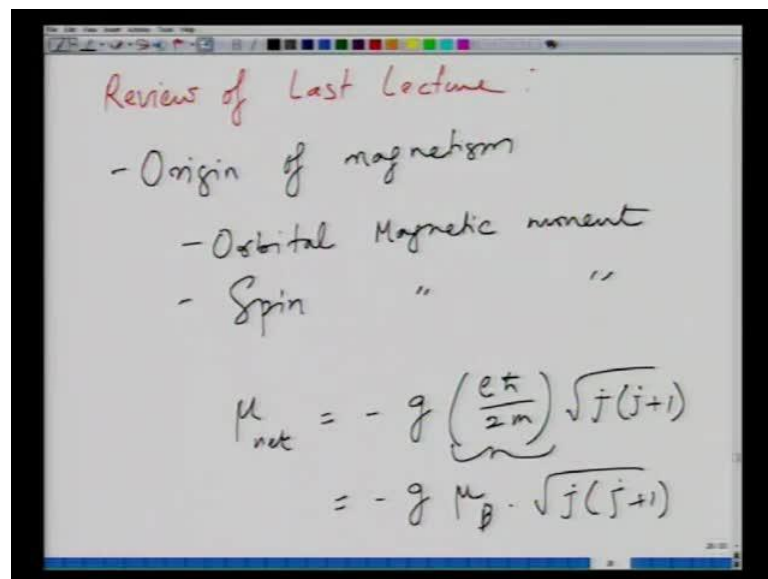 Review of Last Lecture :
- Origin of magnetism
- Orbital Magnetic moment
- Spin " "
μ_net = - g (eħ/2m) √j(j+1)
= - g μ_B · √j(j+1)